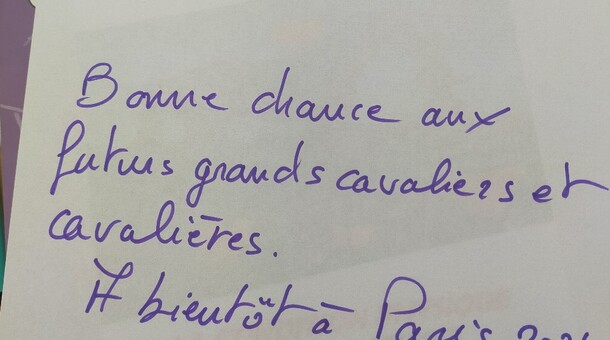 Bonne chance aux
futurs grands cavaliers et
cavalières.
A bientôt à Paris